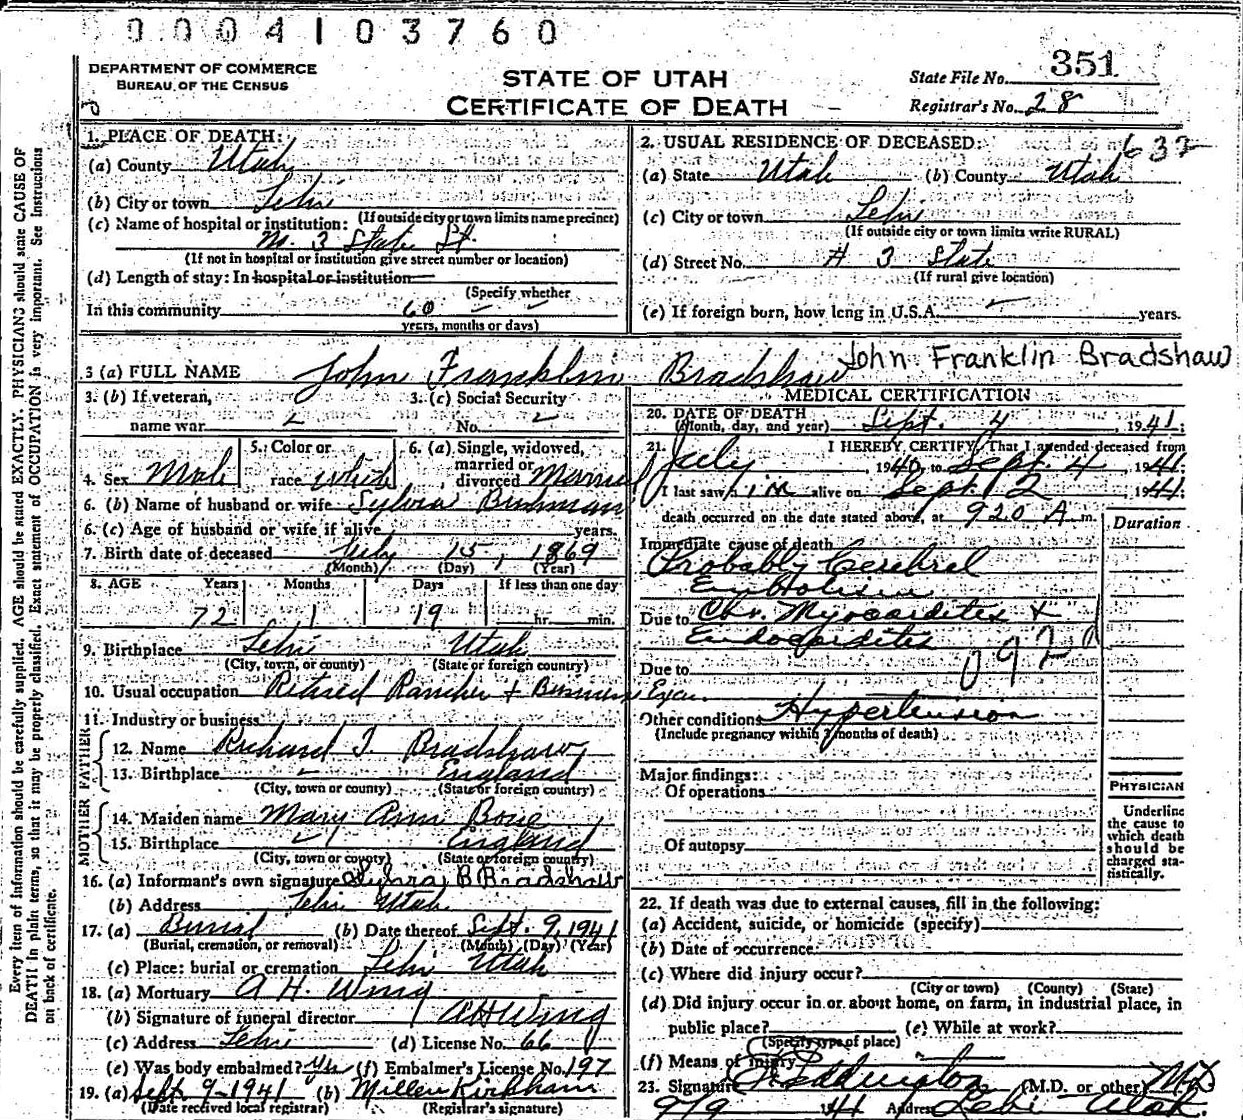 0004103760
DEPARTMENT OF COMMERCE
BUREAU OF THE CENSUS
STATE OF UTAH
CERTIFICATE OF DEATH
State File No. 351
Registrar's No. 28
Every item of information should be carefully supplied. AGE should be stated EXACTLY. PHYSICIANS should state CAUSE OF
DEATH in plain terms, so that it may be properly classified. Exact statement of OCCUPATION is very important. See Instructions
on back of certificate.
1. PLACE OF DEATH:
(a) County Utah
(b) City or town Lehi
(If outside city or town limits name precinct)
(c) Name of hospital or institution:
No. 3 State St.
(If not in hospital or institution give street number or location)
(d) Length of stay: In hospital or institution
(Specify whether
In this community 60
years, months or days)
2. USUAL RESIDENCE OF DECEASED: 632
(a) State Utah (b) County Utah
(c) City or town Lehi
(If outside city or town limits write RURAL)
(d) Street No. # 3 State
(If rural give location)
(e) If foreign born, how long in U.S.A. years.
3 (a) FULL NAME John Franklin Bradshaw John Franklin Bradshaw
3. (b) If veteran,
name war
3. (c) Social Security
No.
4. Sex Male
5. Color or
race white
6. (a) Single, widowed,
married or
divorced Married
6. (b) Name of husband or wife Sylvia
6. (c) Age of husband or wife if alive years.
7. Birth date of deceased July 15, 1869
(Month) (Day) (Year)
8. AGE Years Months Days If less than one day
72 1 19 hr. min.
9. Birthplace Lehi Utah
(City, town, or county) (State or foreign country)
10. Usual occupation Retired Rancher + Business Exec.
11. Industry or business
FATHER
12. Name Richard T. Bradshaw
13. Birthplace England
(City, town or county) (State or foreign country)
MOTHER
14. Maiden name Mary Ann Bone
15. Birthplace England
(City, town or county) (State or foreign country)
16. (a) Informant's own signature Sylvia B Bradshaw
(b) Address Lehi Utah
17. (a) Burial (b) Date thereof Sept. 9, 1941
(Burial, cremation, or removal) (Month) (Day) (Year)
(c) Place: burial or cremation Lehi Utah
18. (a) Mortuary A H. Wing
(b) Signature of funeral director A H Wing
(c) Address Lehi (d) License No. 66
(e) Was body embalmed? Yes (f) Embalmer's License No. 197
19. (a) Sept. 9-1941 (b) Kirkham
(Date received local registrar) (Registrar's signature)
MEDICAL CERTIFICATION
20. DATE OF DEATH
(Month, day, and year) Sept. 4, 1941;
21. I HEREBY CERTIFY, That I attended deceased from
July, 1940, to Sept. 4, 1941;
I last saw him alive on Sept. 2 1941;
death occurred on the date stated above, at 920 A m.
Duration
Immediate cause of death
Probably Cerebral
Embolism
Due to Chr. Myocarditis +
Endocarditis
Due to 092
Other conditions Hypertension
(Include pregnancy within 3 months of death)
Major findings:
Of operations
Of autopsy
PHYSICIAN
Underline
the cause to
which death
should be
charged sta-
tistically.
22. If death was due to external causes, fill in the following:
(a) Accident, suicide, or homicide (specify)
(b) Date of occurrence
(c) Where did injury occur?
(City or town) (County) (State)
(d) Did injury occur in or about home, on farm, in industrial place, in
public place? (e) While at work?
(Specify type of place)
(f) Means of injury
23. Signature Eddington (M.D. or other) MD
9/9 1941 Address Lehi Utah.